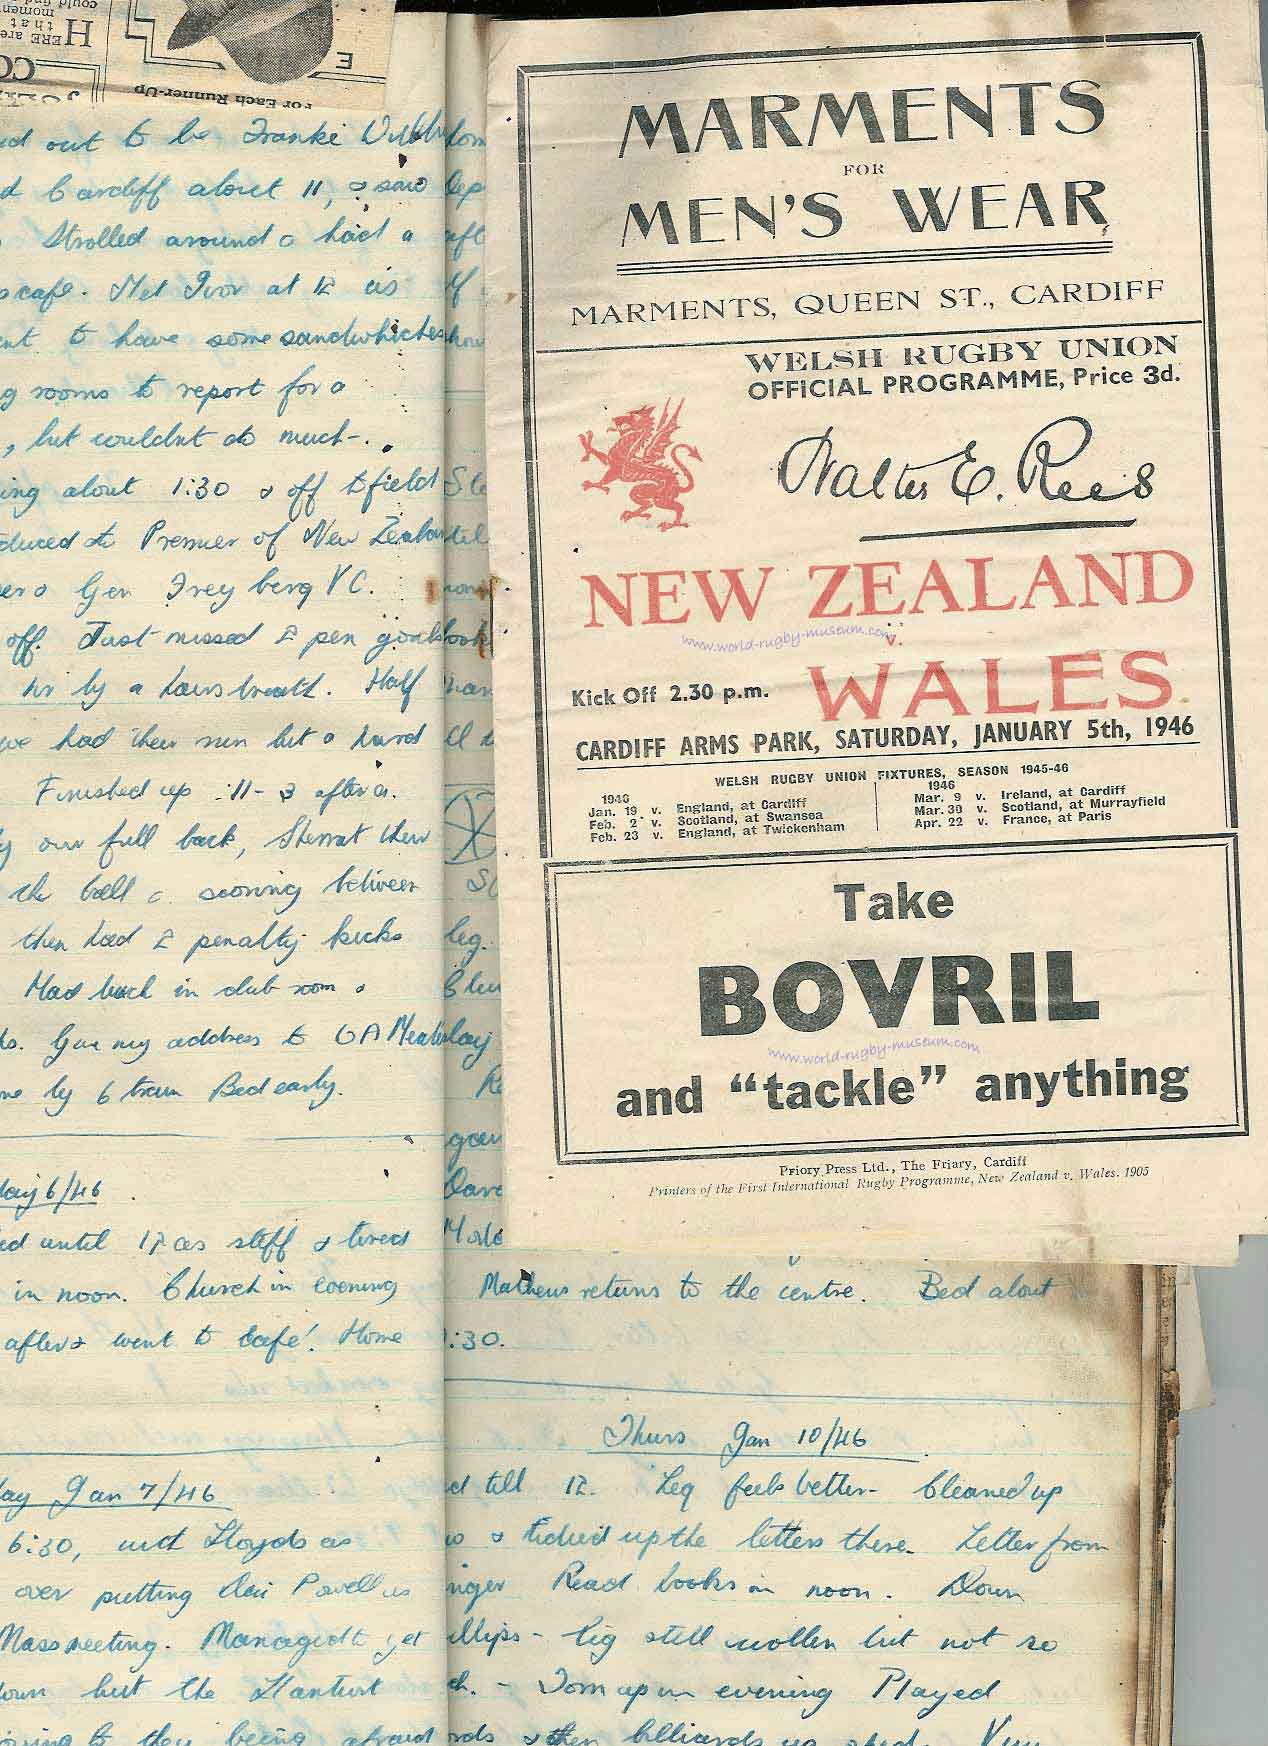 For Each Runner-Up
E
HERE are
that
moment
MARMENTS
FOR
MEN'S WEAR
MARMENTS, QUEEN ST., CARDIFF
WELSH RUGBY UNION
OFFICIAL PROGRAMME, Price 3d.
Walter E. Rees
NEW ZEALAND
www.world-rugby-museum.com
v.
WALES
Kick Off 2.30 p.m.
CARDIFF ARMS PARK, SATURDAY, JANUARY 5th, 1946
WELSH RUGBY UNION FIXTURES, SEASON 1945-46
1946
Jan. 19 v. England, at Cardiff
Feb. 2 v. Scotland, at Swansea
Feb. 23 v. England, at Twickenham
1946
Mar. 9 v. Ireland, at Cardiff
Mar. 30 v. Scotland, at Murrayfield
Apr. 22 v. France, at Paris
Take
BOVRIL
www.world-rugby-museum.com
and "tackle" anything
Priory Press Ltd., The Friary, Cardiff
Printers of the First International Rugby Programme, New Zealand v. Wales. 1905
out to be Franke
Cardiff about 11, & saw
Strolled around & had a
cafe. Met Ivor at 12 as
to have some sandwhiches
rooms to report for a
, but couldnt do much-.
about 1:30 & off to field
to Premier of New Zealan
& Gen Freyberg VC.
off. Just missed 2 pen goals
by a hairsbreath. Half
we had their run but a hard
Finished up 11-3 after a
our full back, Sherrat then
the ball & scoring between
then had 2 penalty kicks
Had bach in club room &
Gave my address to
by 6 train Bed early.
day 6/46
until 12 as stiff & tired
in noon. Church in evening
after & went to cafe! Home
Jan 7/46
6:30, Lloyds as
over putting Dai Powell as
Mass meeting. Managed to get
but the Llantwit
to they being afraid
Mathews returns to the centre. Bed about
:30.
Thurs Jan 10/46
till 12. Leg feels better- Cleaned up
& tidied up the letters there. Letter from
Read books in noon. Down
leg still swollen but not so
- Tom up in evening Played
& then billiards